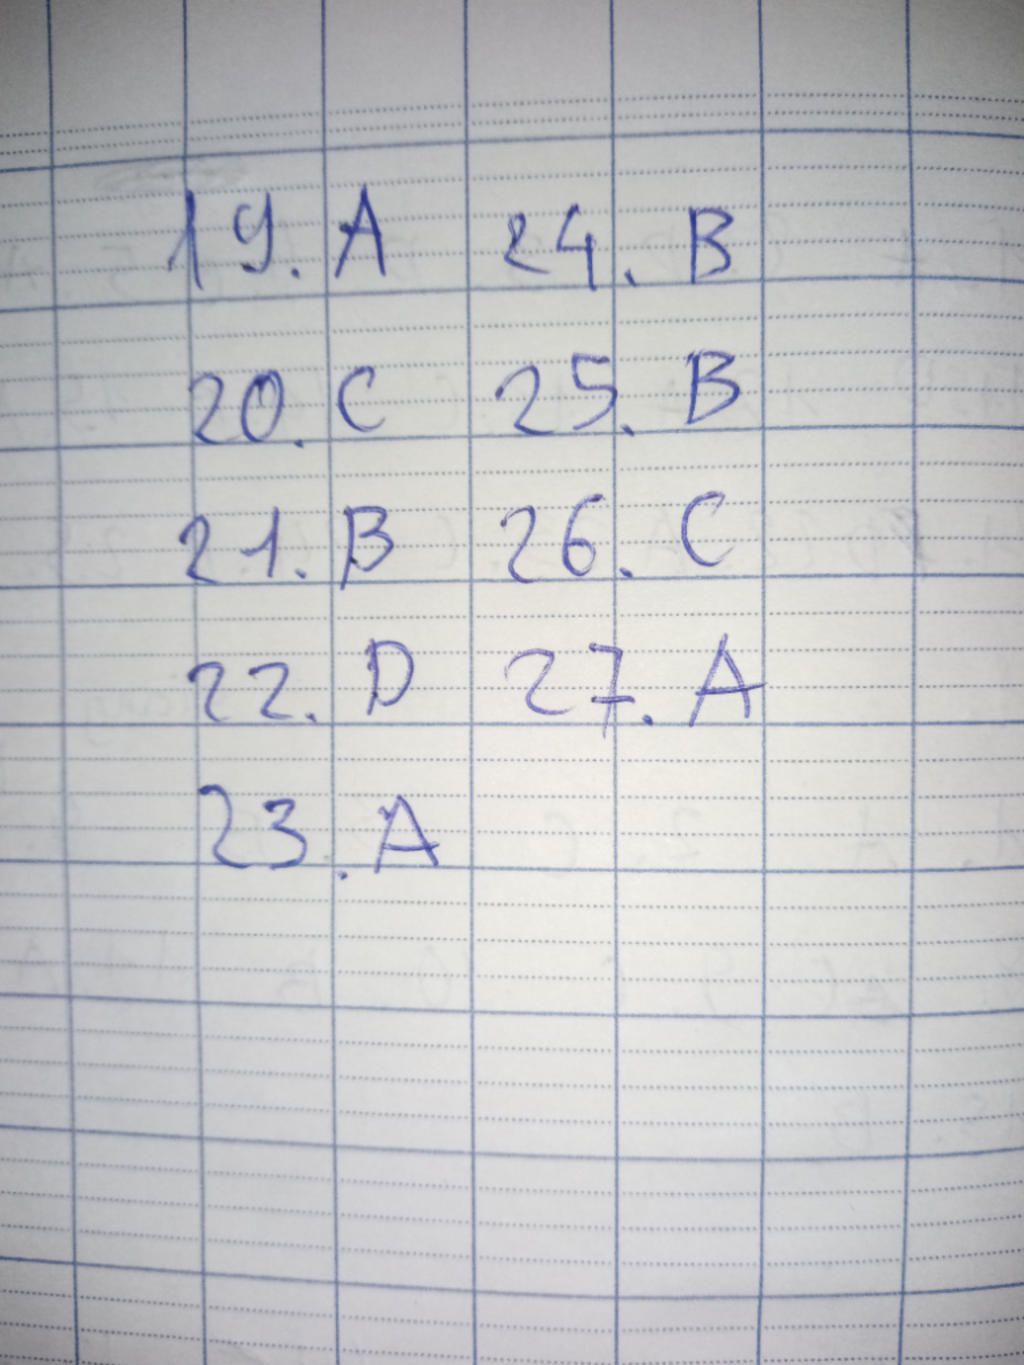 19. A 24. B
20. C 25. B
21. B 26. C
22. D 27. A
23. A